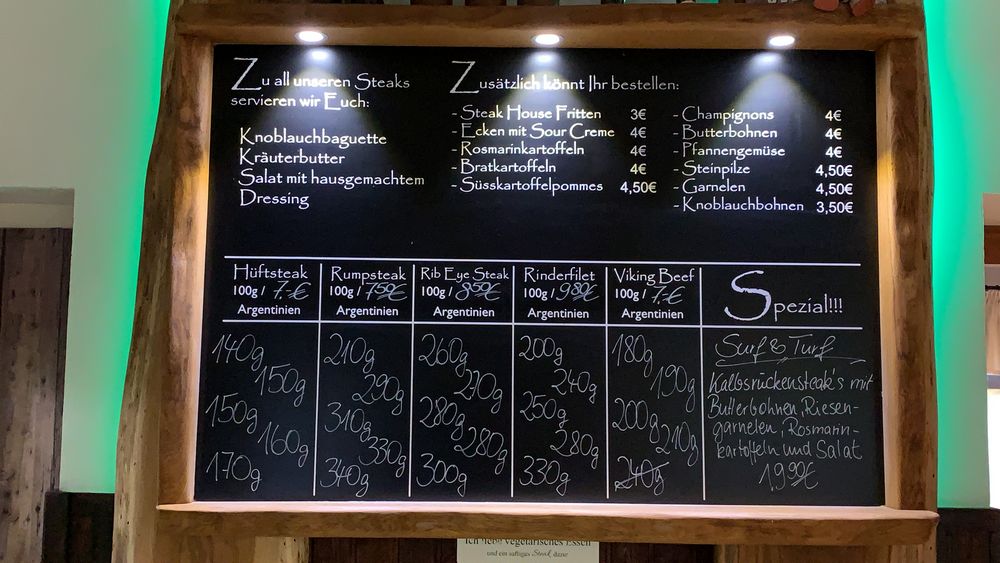 Zu all unseren Steaks
servieren wir Euch:
Knoblauchbaguette
Kräuterbutter
Salat mit hausgemachtem
Dressing
Zusätzlich könnt Ihr bestellen:
- Steak House Fritten 3€
- Ecken mit Sour Creme 4€
- Rosmarinkartoffeln 4€
- Bratkartoffeln 4€
- Süsskartoffelpommes 4,50€
- Champignons 4€
- Butterbohnen 4€
- Pfannengemüse 4€
- Steinpilze 4,50€
- Garnelen 4,50€
- Knoblauchbohnen 3,50€
Hüftsteak
100g / 7.-€
Argentinien
140g
150g
150g
160g
170g
Rumpsteak
100g / 7,50€
Argentinien
210g
290g
310g
330g
340g
Rib Eye Steak
100g / 8,50€
Argentinien
260g
270g
280g
280g
300g
Rinderfilet
100g / 9,80€
Argentinien
200g
240g
250g
280g
330g
Viking Beef
100g / 7.-€
Argentinien
180g
190g
200g
210g
240g
Spezial!!!
Surf & Turf
Kalbsrückensteak's mit
Butterbohnen, Riesen-
garnelen, Rosmarin-
kartoffeln und Salat
19,90€
Ich liebe vegetarisches Essen
und ein saftiges Steak dazu